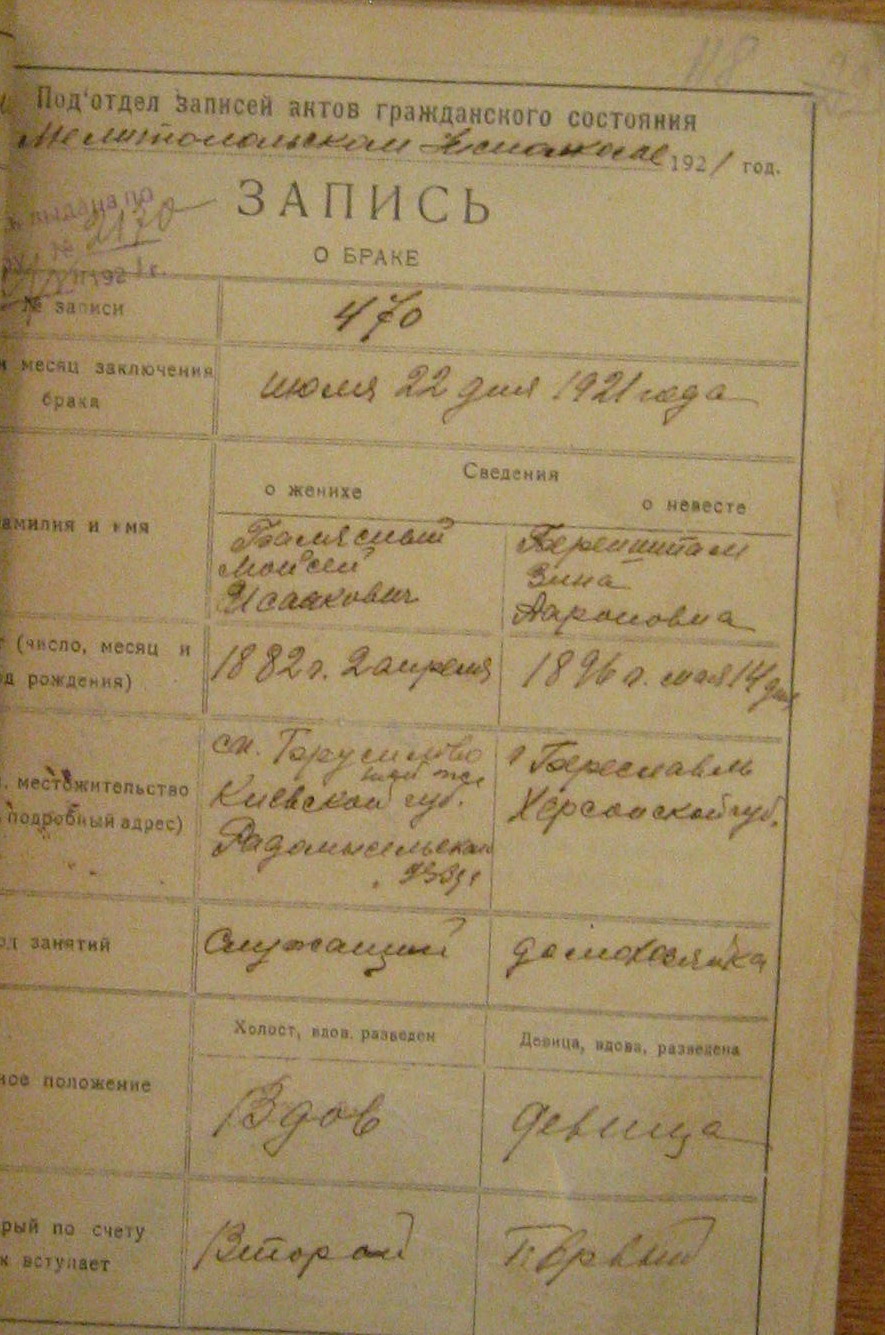 118
Под'отдел записей актов гражданского состояния
Мелитопольском 1921 год.
выдана по
№ 2170
192 1 г.
ЗАПИСЬ
О БРАКЕ
№ записи
470
месяц заключения
брака
июля 22 дня 1921 года
Сведения
о женихе
о невесте
амилия и имя
Балясный
Моисей
Исаакович
Зина
Аароновна
(число, месяц и
д рождения)
1882 г. 2 апреля
1896 г. мая 14 дня
местожительство
подробный адрес)
Киевской губ.
Радомысльскаго
г Береславль
Херсонской губ.
од занятий
Служащий
домохозяйка
Холост, вдов. разведен
Девица, вдова, разведена
ное положение
Вдов
девица
рый по счету
к вступает
Второй
Первый